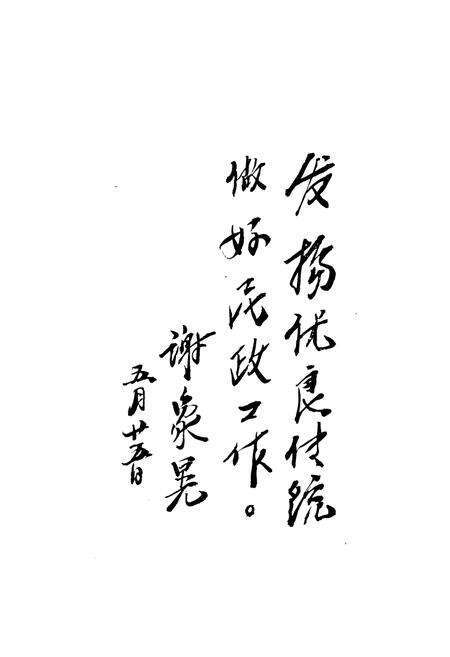 发扬优良传统
做好民政工作。
谢象晃
五月廿五日